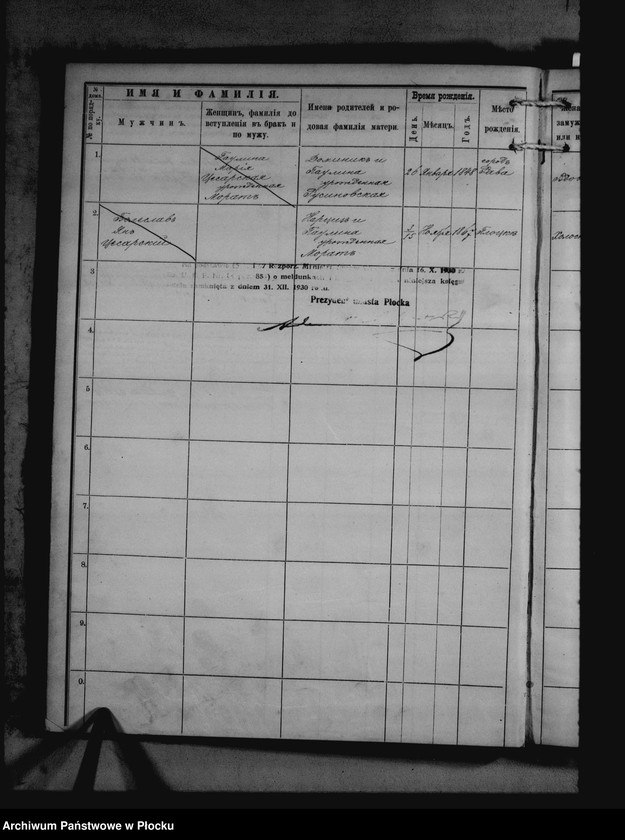 ИМЯ И ФАМИЛІЯ.
Мужчинъ.
Женщинъ, фамилія до
вступленія въ бракъ и
по мужу.
Имена родителей и ро-
довая фамилія матери.
Время рожденія.
День.
Мѣсяцъ.
Годъ.
Мѣсто
рожденія.
1.
Паулина
Марія
Цесарская
урожденная
Моратъ
Доминикъ и
Паулина
урожденная
Русиновская
26 Января 1848
городъ
2.
Болеславъ
Янъ
Цесарскій
и
Паулина
урожденная
Моратъ
3/15 Ноября
Плоцкъ
3
dnia 16. X. 1930 r.
o meldunkach
niniejsza księga
zamknięta z dniem 31. XII. 1930 roku.
Prezydent miasta Płocka
4.
5
6.
7.
8.
9.
0.
Archiwum Państwowe w Płocku